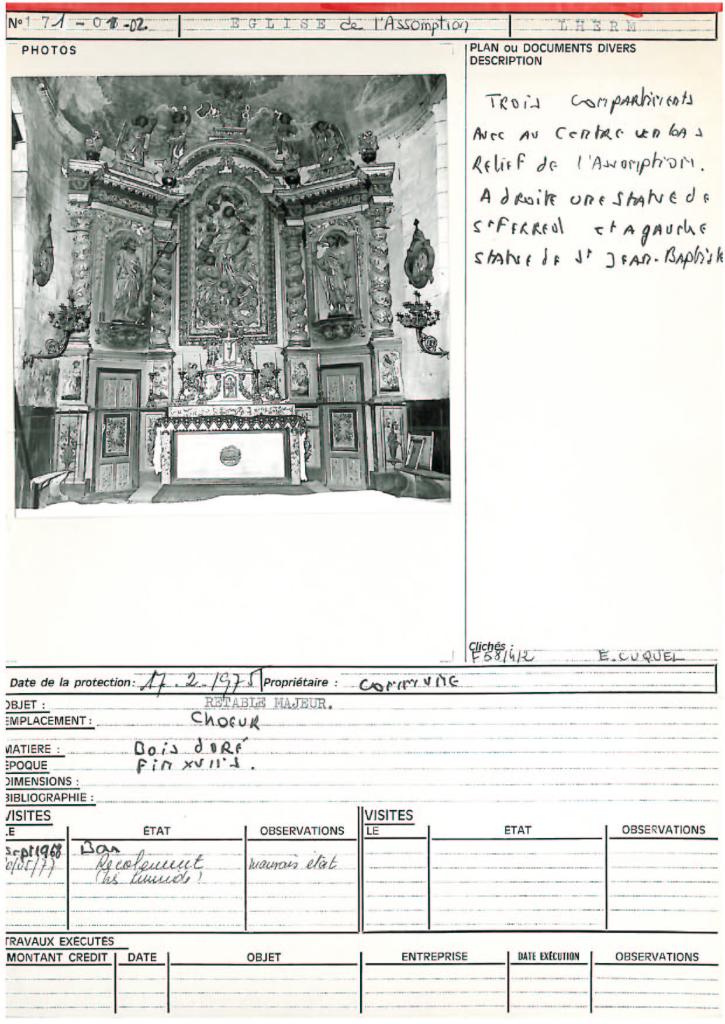 N° 1 71 - 01 - 02 EGLISE de l'Assomption LHERM
PHOTOS
PLAN ou DOCUMENTS DIVERS
DESCRIPTION
TROIS COMPARTIMENTS
AVEC AU CENTRE UN bAS
RELIEF de l'Assomption.
A dROITE UNE STATUE de
St FERREOL et A gAUCHE
STATUE de St JEAN-BAptiste
Clichés :
F 68/4/2 E. CUQUEL
Date de la protection: 17.2.1975 Propriétaire : COMMUNE
OBJET : RETABLE MAJEUR.
EMPLACEMENT : CHOEUR
MATIERE : Bois dORÉ
EPOQUE Fin XVII's.
DIMENSIONS :
BIBLIOGRAPHIE :
VISITES VISITES
LE ÉTAT OBSERVATIONS LE ETAT OBSERVATIONS
sept 1968 Bon
/05/77 Recolement mauvais état
TRAVAUX EXÉCUTÉS
MONTANT CRÉDIT DATE OBJET ENTREPRISE DATE EXÉCUTION OBSERVATIONS